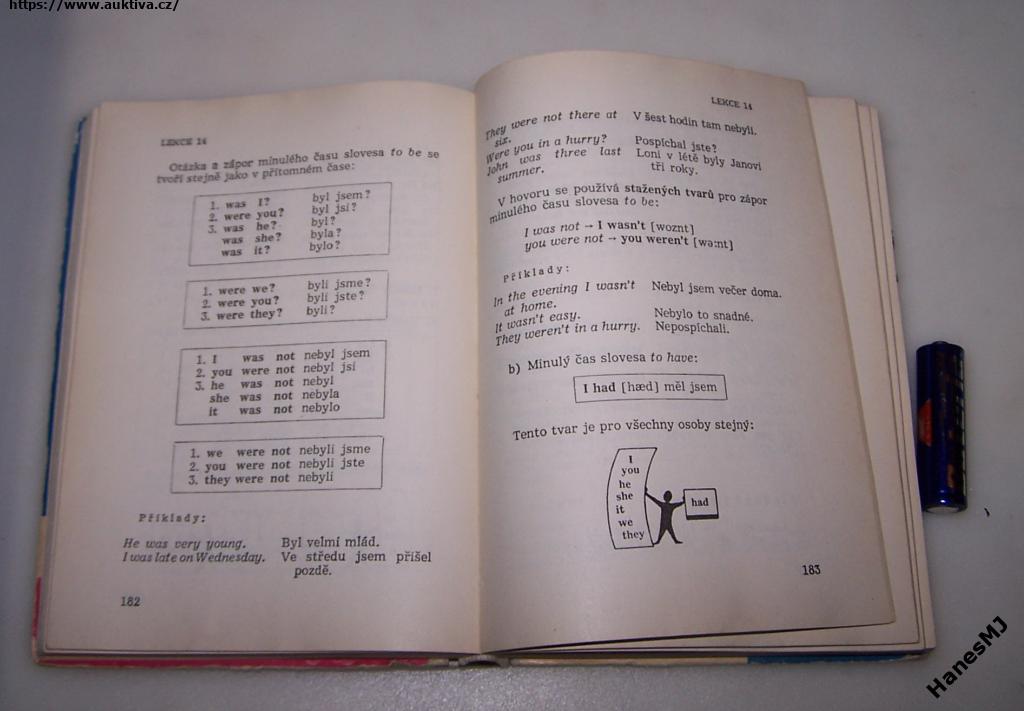 https://www.auktiva.cz/
LEKCE 14
Otázka a zápor minulého času slovesa to be se
tvoří stejně jako v přítomném čase:
1. was I? byl jsem?
2. were you? byl jsi?
3. was he? byl?
was she? byla?
was it? bylo?
1. were we? byli jsme?
2. were you? byli jste?
3. were they? byli?
1. I was not nebyl jsem
2. you were not nebyl jsi
3. he was not nebyl
she was not nebyla
it was not nebylo
1. we were not nebyli jsme
2. you were not nebyli jste
3. they were not nebyli
Příklady:
He was very young. Byl velmi mlád.
I was late on Wednesday. Ve středu jsem přišel
pozdě.
182
LEKCE 14
They were not there at V šest hodin tam nebyli.
six.
Were you in a hurry? Pospíchal jste?
John was three last Loni v létě byly Janovi
summer. tři roky.
V hovoru se používá stažených tvarů pro zápor
minulého času slovesa to be:
I was not → I wasn't [woznt]
you were not → you weren't [wə:nt]
Příklady:
In the evening I wasn't Nebyl jsem večer doma.
at home.
It wasn't easy. Nebylo to snadné.
They weren't in a hurry. Nepospíchali.
b) Minulý čas slovesa to have:
I had [hæd] měl jsem
Tento tvar je pro všechny osoby stejný:
I
you
he
she
it
we
they
had
183
HanesMJ